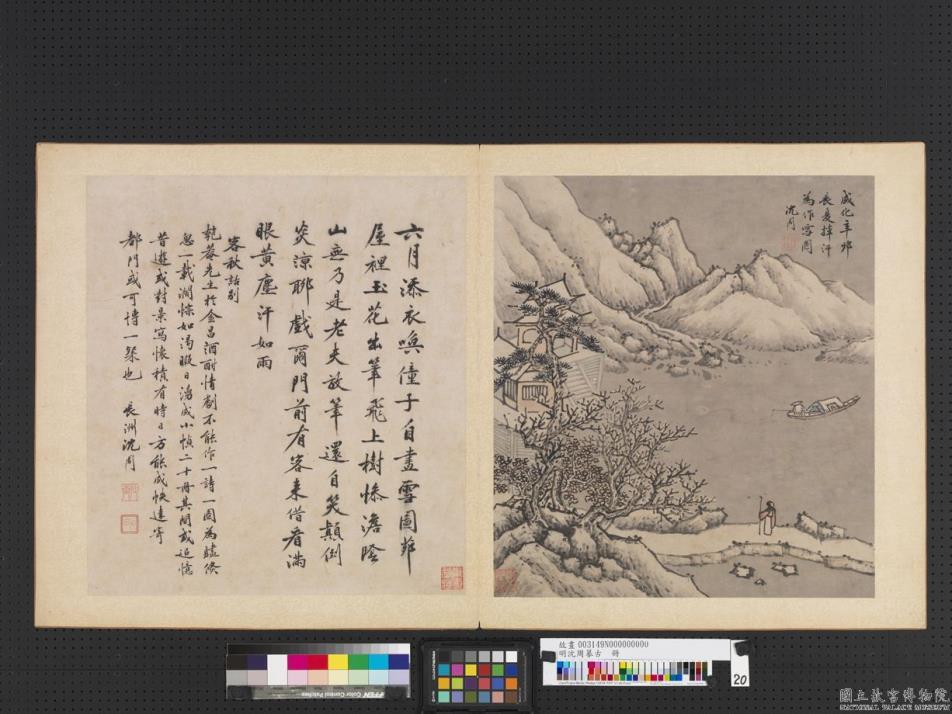 成化辛卯
長夏揮汗
為作雪圖
沈周
六月添衣喚僮子自畫雪圖茆
屋裡玉花出筆飛上樹慘澹陰
山無乃是老夫放筆還自笑顛倒
炎涼聊戲爾門前有客來借看滿
眼黃塵汗如雨
客秋話別
乾菴先生於金昌酒酣情劇不能作一詩一圖為贐倏
忽一載悰如渴暇日潑成小幀二十冊其間或追憶
昔遊或對景寫懷積有時日方能成帙遠寄
都門或可博一粲也 長洲沈周
故畫 003149N000000000
明沈周摹古 冊
20
國立故宮博物院
NATIONAL PALACE MUSEUM